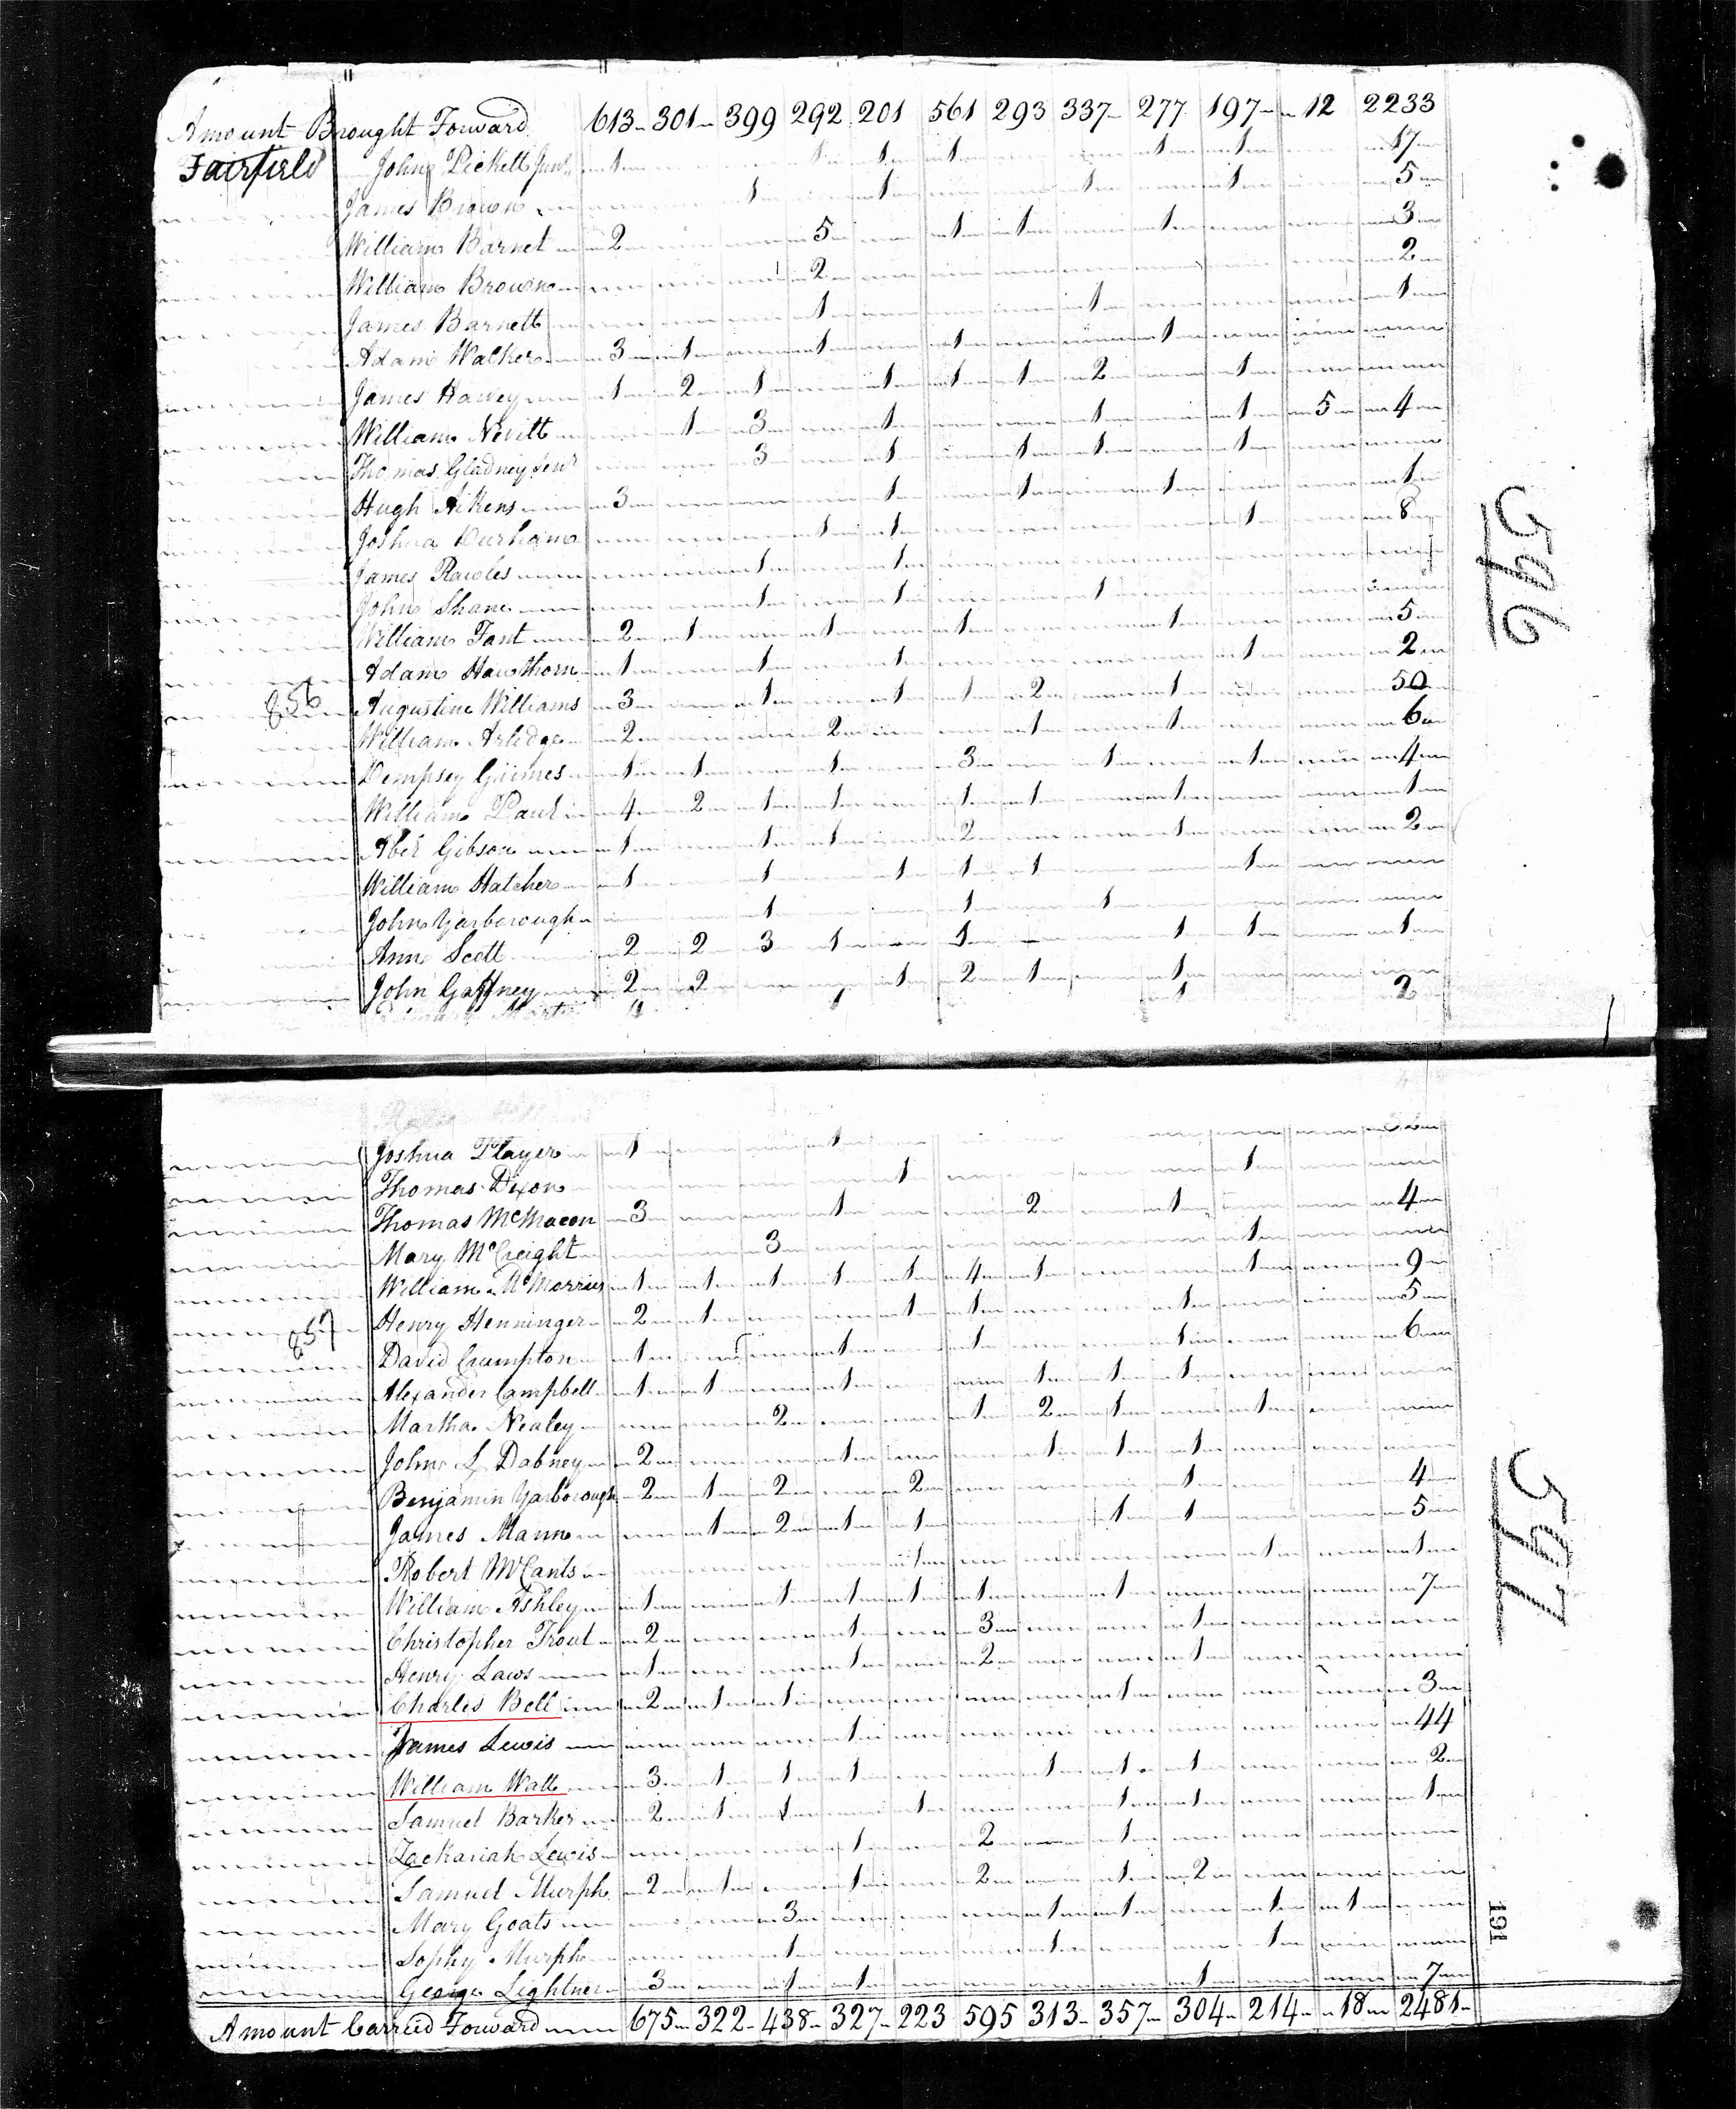 Amount Brought Forward 613 301 399 292 201 561 293 337 277 197 12 2233
Fairfield John Pickett Junr 1 1 1 1 1 1 17
James Brown 1 1 1 1 5
William Barnet 2 5 1 1 1 3
William Brown 2 2
James Barnett 1 1 1
Adam Walker 3 1 1 1 1
James Harvey 1 2 1 1 1 1 2 1
William Nevitt 1 3 1 1 1 5 4
Thomas Gladney Senr 3 1 1 1 1
Hugh Aikens 3 1 1 1 1
Joshua Durham 1 1 1 8
James Rawles 1 1
John Shane 1 1 1
William Fant 2 1 1 1 1 5
Adam Hawthorn 1 1 1 1 2
856 Augustine Williams 3 1 1 1 2 1 50
William Arledge 2 2 1 1 6
Dempsey Grimes 1 1 1 3 1 1 4
William Paul 4 2 1 1 1 1 1 1
Abel Gibson 1 1 1 2 1 2
William Hatcher 1 1 1 1 1 1
John Yarborough 1 1 1
Ann Scott 2 2 3 1 1 1 1 1
John Gaffney 2 2 1 2 1 1
2
596
Joshua Player 1 1
Thomas Dixon 1 1
Thomas McMacon 3 1 2 1 4
Mary McCreight 3 1
William McMorries 1 1 1 1 1 4 1 1 9
Henry Henninger 2 1 1 1 1 5
857 David Crumpton 1 1 1 1 6
Alexander Campbell 1 1 1 1 1 1
Martha Nealey 2 1 2 1 1
John L Dabney 2 1 1 1 1
Benjamin Yarborough 2 1 2 2 1 4
James Mann 1 2 1 1 1 1 5
Robert McCants 1 1 1
William Ashley 1 1 1 1 1 1 7
Christopher Trout 2 1 3 1
Henry Laws 1 1 2 1
Charles Bell 2 1 1 1 3
James Lewis 1 44
William Watt 3 1 1 1 1 1 1 2
Samuel Barker 2 1 1 1 1 1 1
Zachariah Lewis 1 2 1
Samuel Murph 2 1 1 2 1 2
Mary Coats 3 1 1 1 1
Sophy Murph 1 1 1
George Lightner 3 1 1 1 7
Amount Carried Forward 675 322 438 327 223 595 313 357 304 214 18 2481
597
191